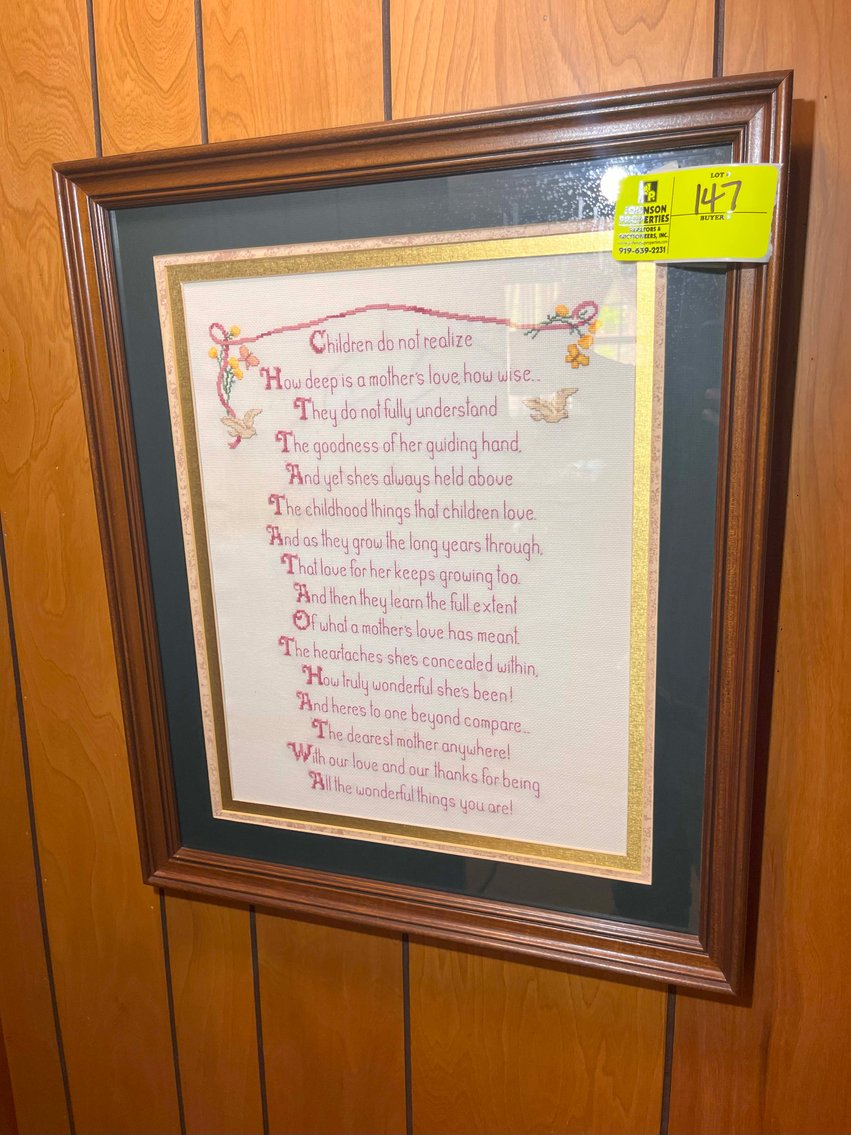 LOT
147
BUYER
JOHNSON
PROPERTIES
REALTORS &
AUCTIONEERS, INC.
919-639-2231
Children do not realize
How deep is a mother's love, how wise...
They do not fully understand
The goodness of her guiding hand,
And yet she's always held above
The childhood things that children love.
And as they grow the long years through,
That love for her keeps growing too.
And then they learn the full extent
Of what a mother's love has meant.
The heartaches she's concealed within,
How truly wonderful she's been!
And here's to one beyond compare...
The dearest mother anywhere!
With our love and our thanks for being
All the wonderful things you are!